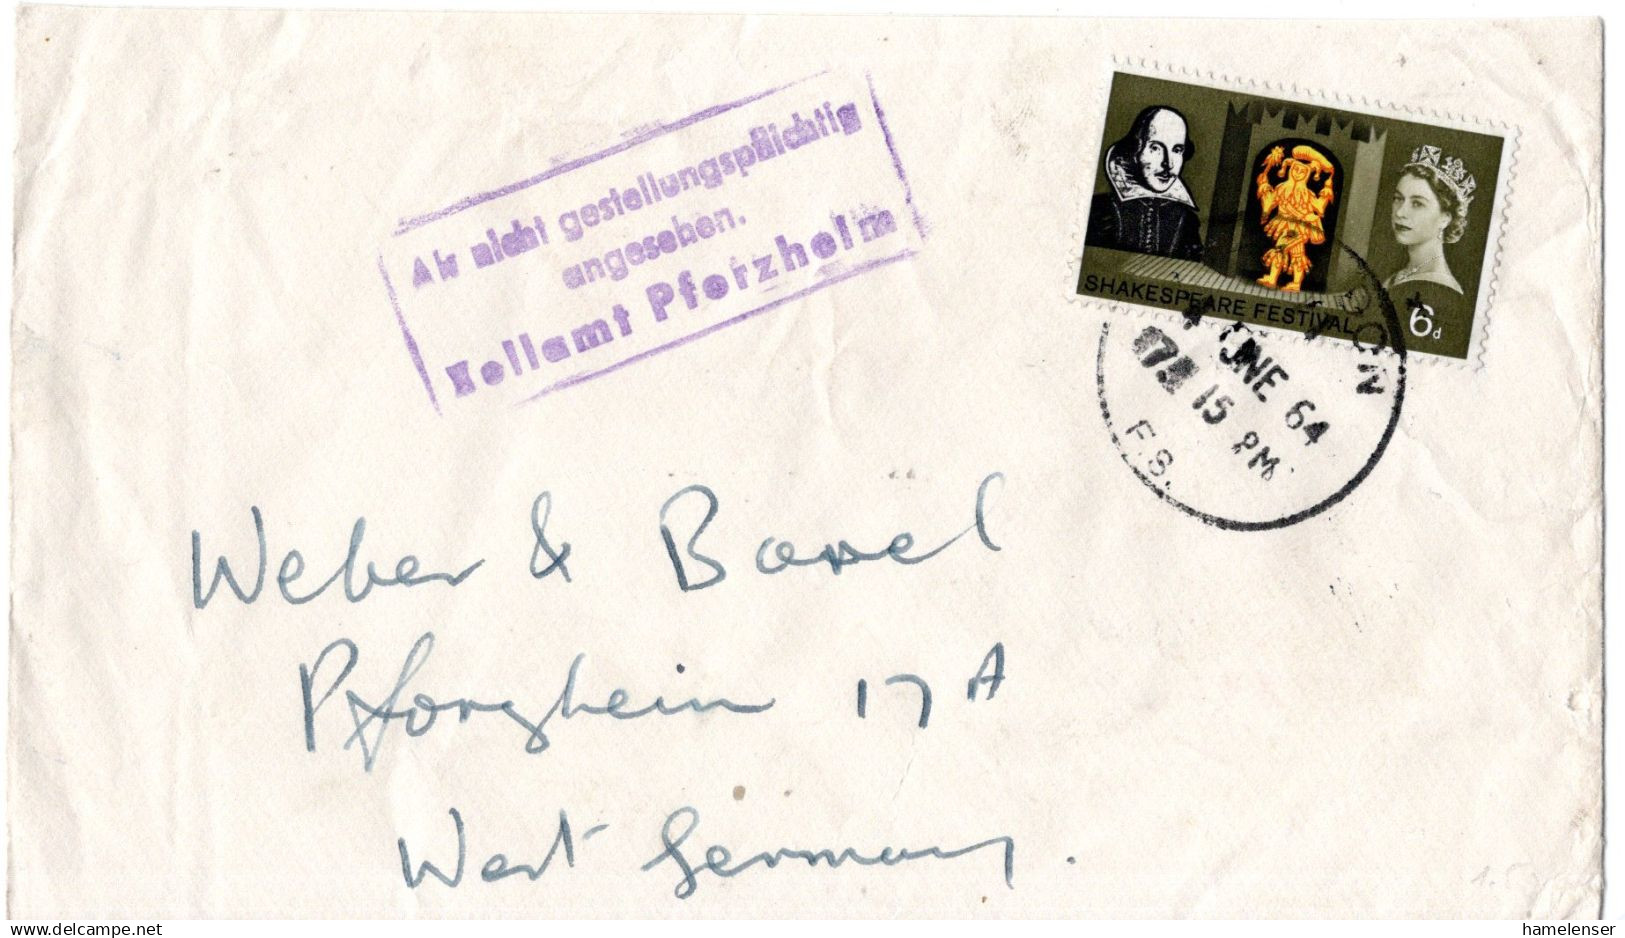 Als nicht gestellungspflichtig
angesehen.
Zollamt Pforzheim
SHAKESPEARE FESTIVAL
6d
LONDON
JUNE 64
15 PM
F.S.
Weber & Baral
Pforzheim 17 A
West Germany.
delcampe.net
hamelenser